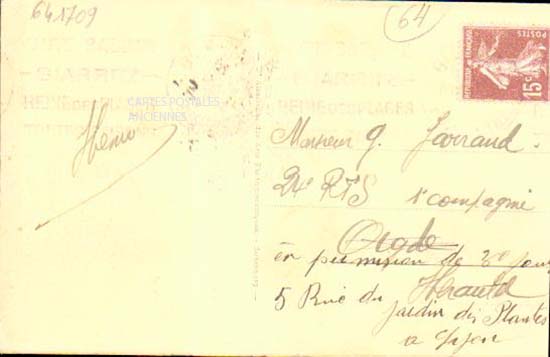 641709
64
POSTES
REPUBLIQUE FRANÇAISE
15c
BIARRITZ
REINE DES PLAGES
BIARRITZ
REINE DES PLAGES
CARTES POSTALES
ANCIENNES
Monsieur G. Jarraud
24e RTS 1e compagnie
Agde
en permission de 30 jours
Hérault
5 Rue du Jardin des Plantes
a Dijon